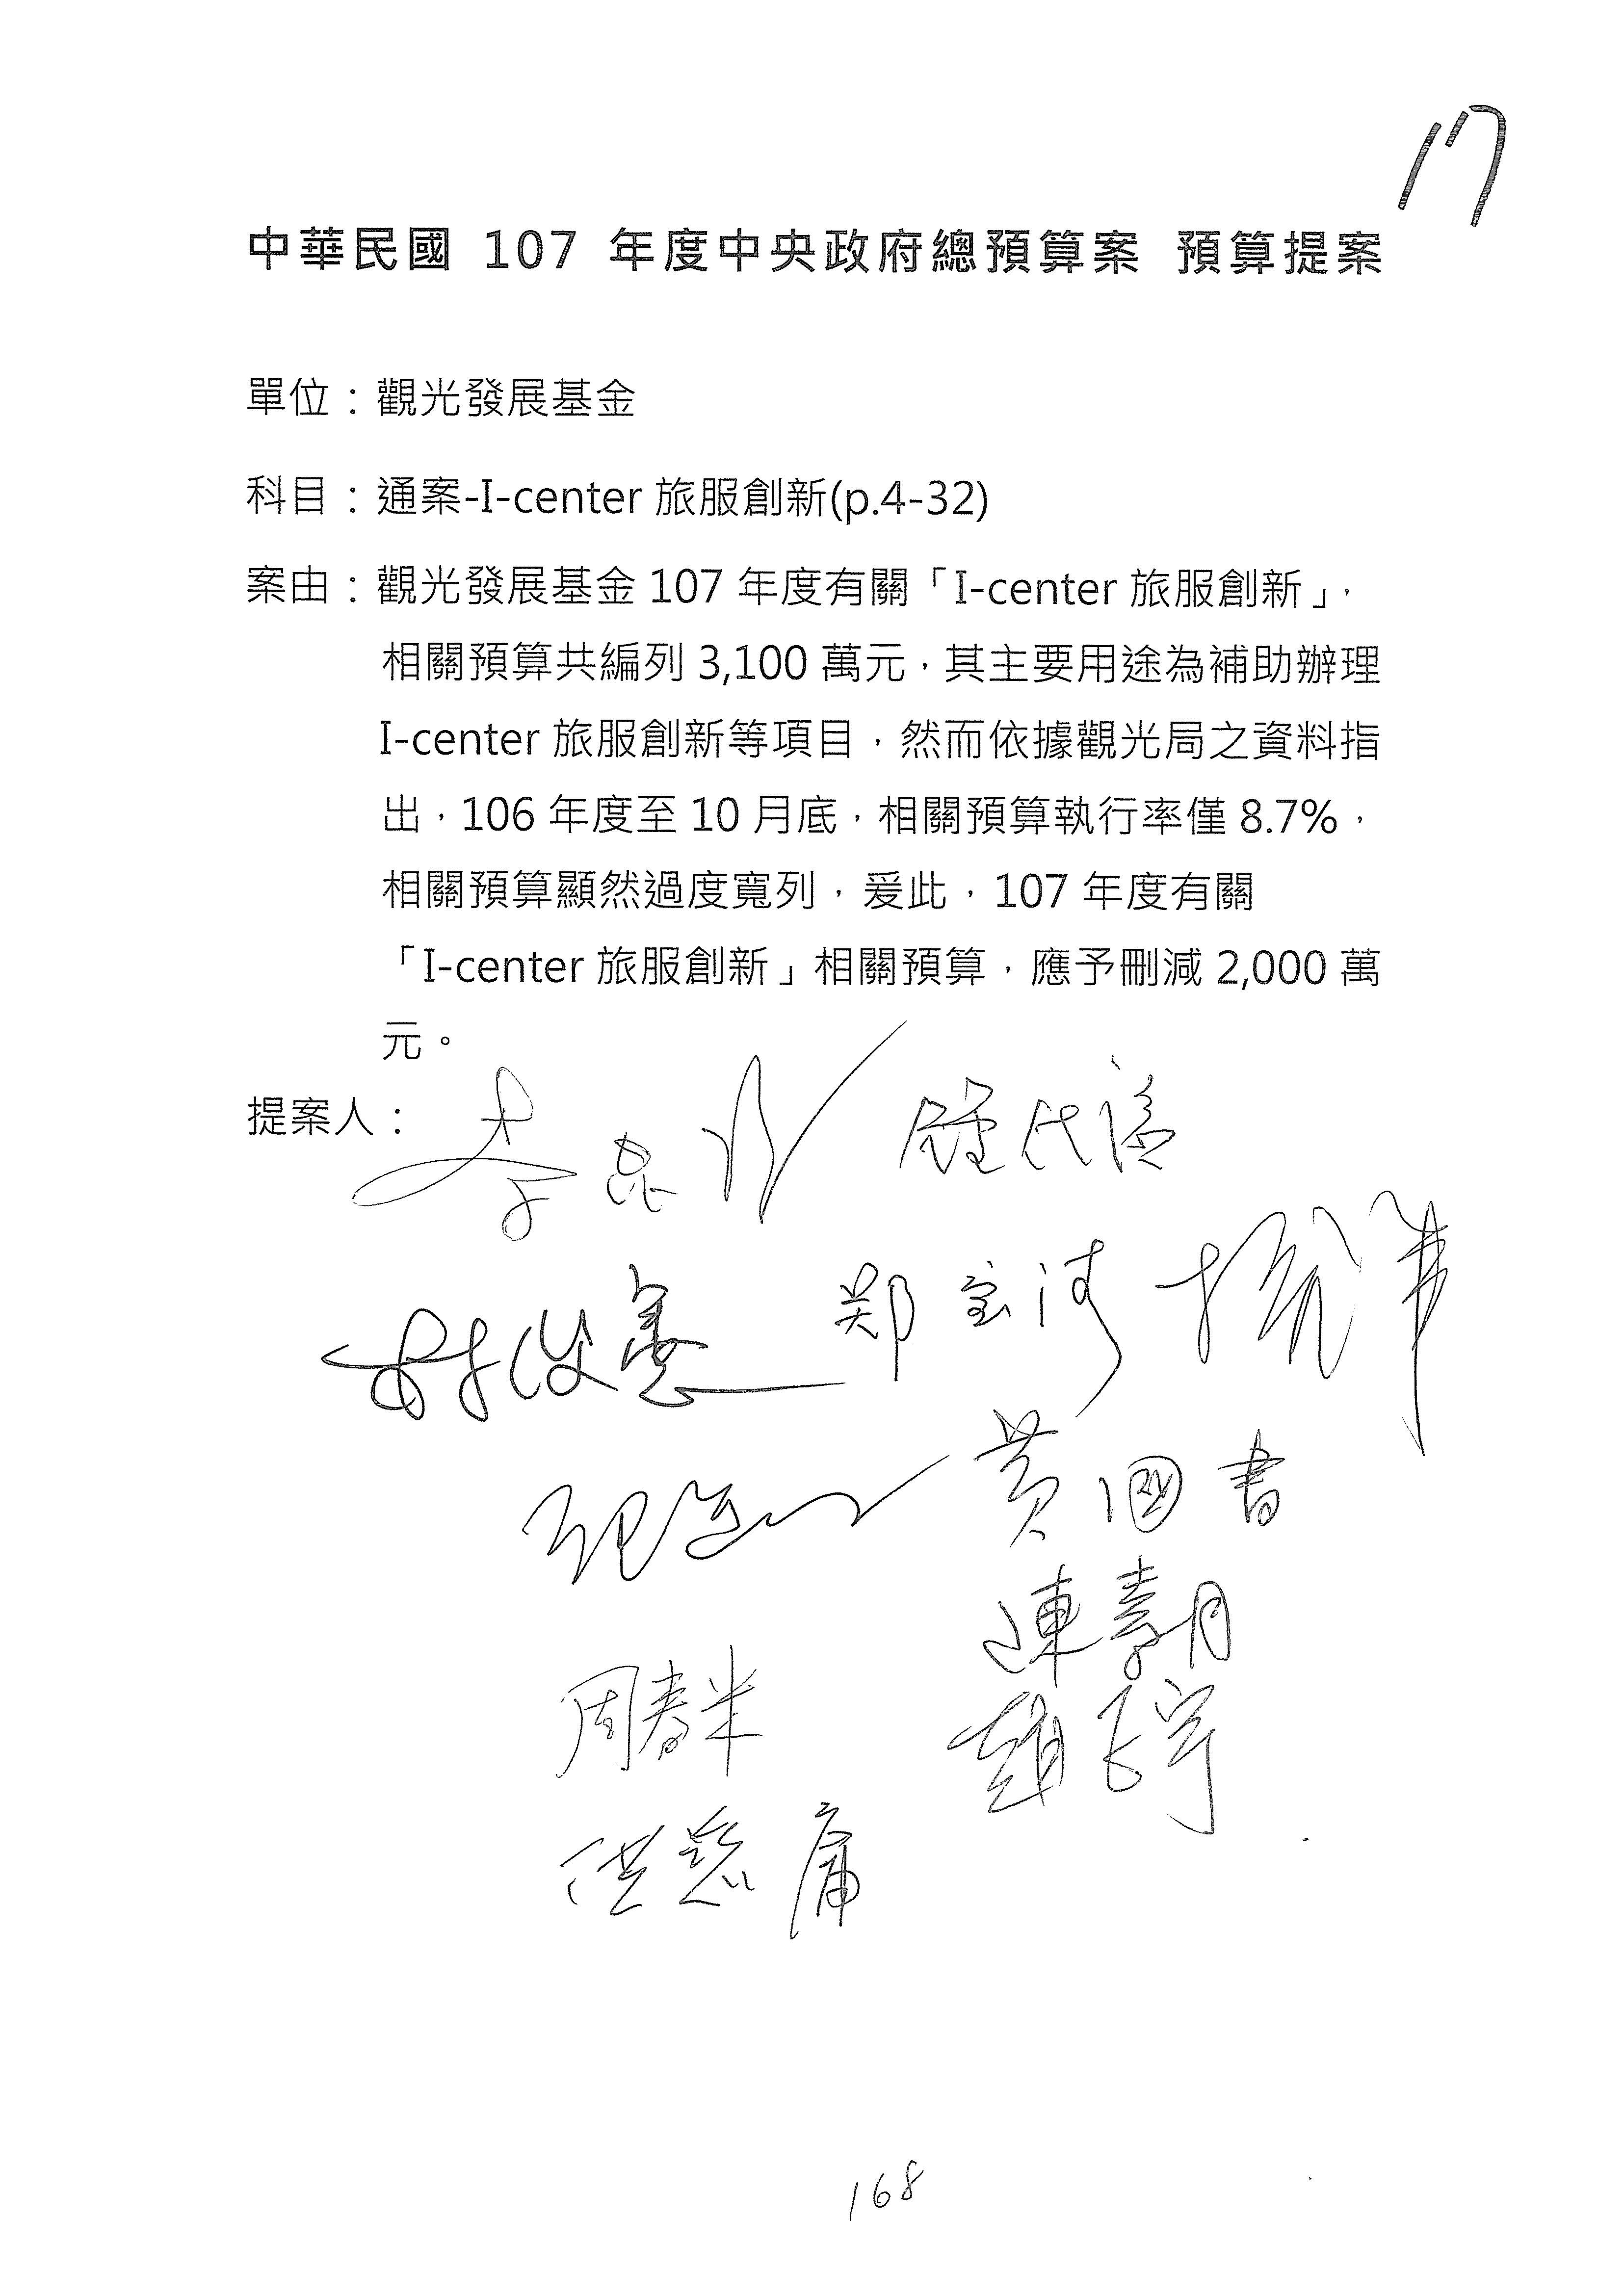 17
中華民國 107 年度中央政府總預算案 預算提案
單位：觀光發展基金
科目：通案-I-center 旅服創新(p.4-32)
案由：觀光發展基金 107 年度有關「I-center 旅服創新」，
相關預算共編列 3,100 萬元，其主要用途為補助辦理
I-center 旅服創新等項目，然而依據觀光局之資料指
出，106 年度至 10 月底，相關預算執行率僅 8.7%，
相關預算顯然過度寬列，爰此，107 年度有關
「I-center 旅服創新」相關預算，應予刪減 2,000 萬
元。
提案人：
林俊憲 鄭寶清
黃國書
周春米
洪慈庸
168